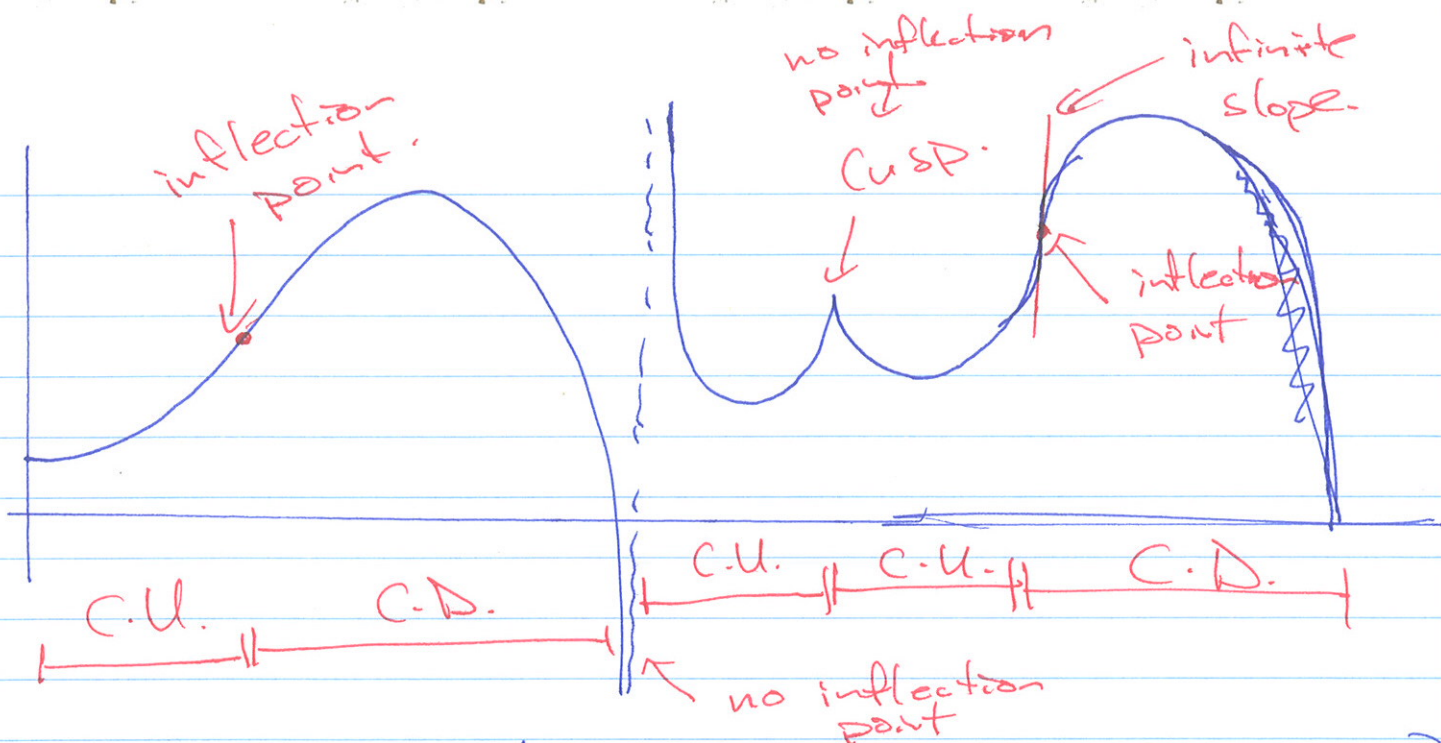 inflection
point.
no inflection
point
Cusp.
infinite
slope.
inflection
point
C.U.
C.D.
C.U.
C.U.
C.D.
no inflection
point